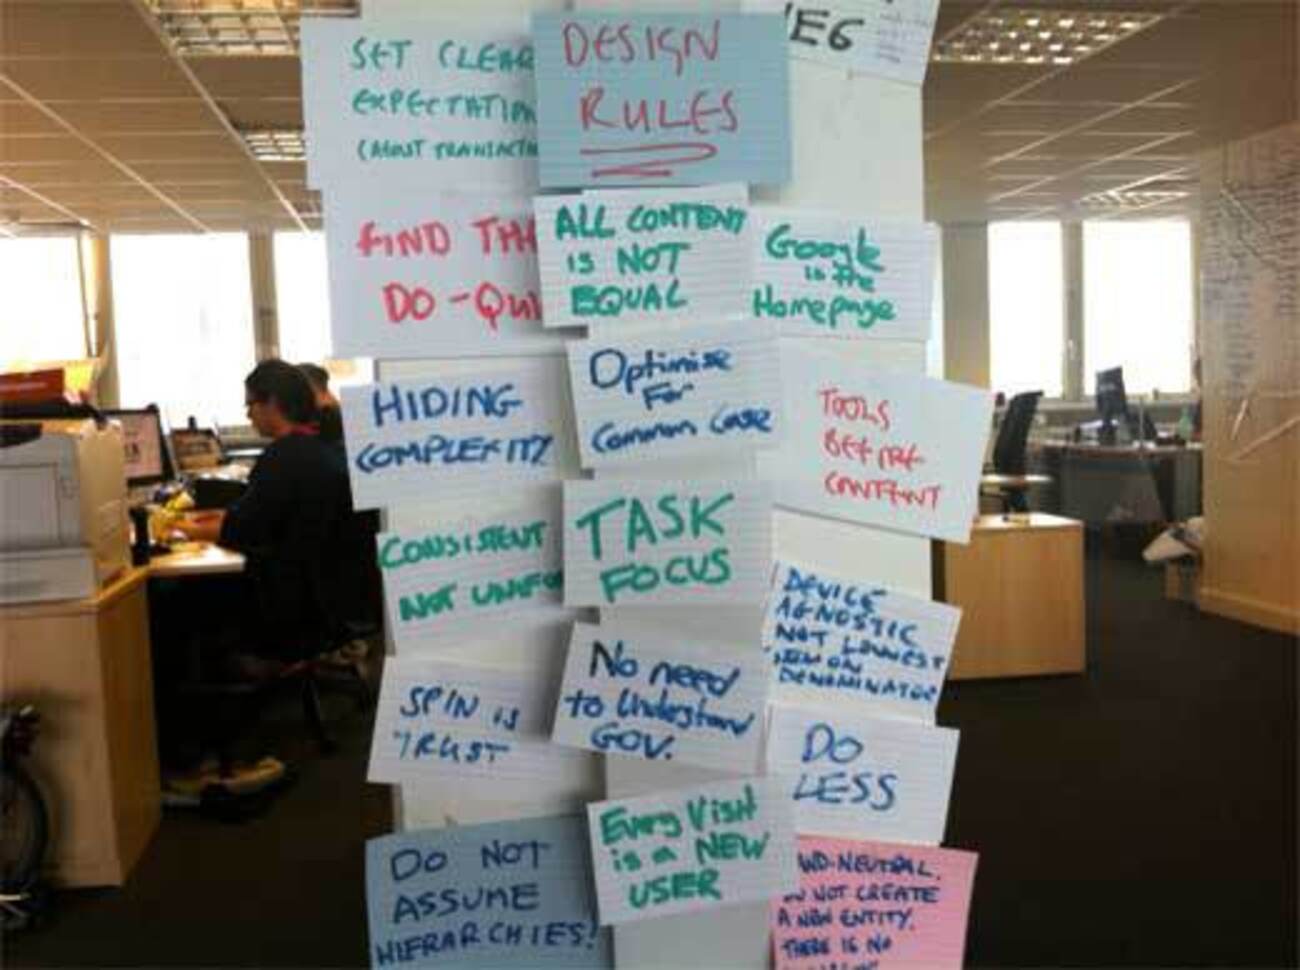 SET CLEAR
EXPECTATION
(ABOUT TRANSACTI
DESIGN
RULES
IE6
FIND THE
DO-QUI
ALL CONTENT
is NOT
EQUAL
Google
is the
Homepage
HIDING
COMPLEXITY
Optimise
For
Common Case
TOOLS
BEFORE
CONTENT
CONSISTENT
NOT UNIFO
TASK
FOCUS
DEVICE
AGNOSTIC
NOT LOWEST
DENOMINATOR
SPIN is
TRUST
No need
to Understand
GOV.
DO
LESS
DO NOT
ASSUME
HIERARCHIES!
Every Visit
is a NEW
USER
ND-NEUTRAL.
NOT CREATE
A NEW ENTITY.
THERE IS NO